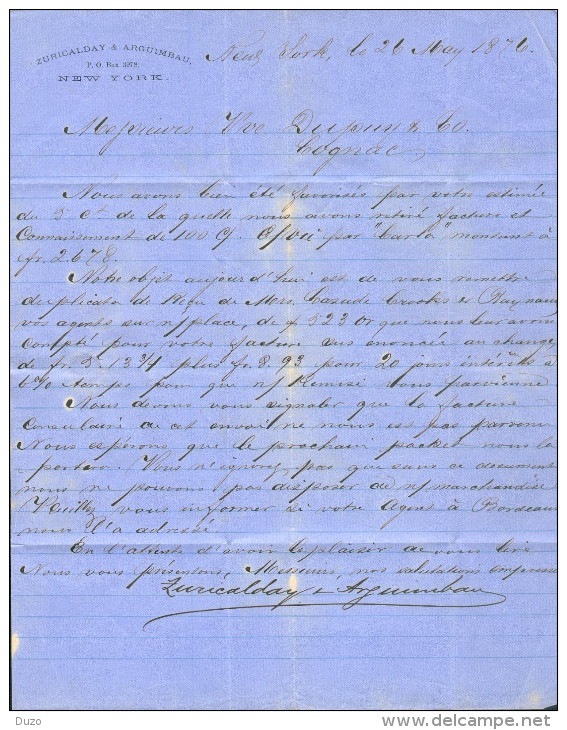 ZURICALDAY & ARGUIMBAU,
P. O. Box
NEW YORK.
New York, le 26 May 1876.
Messieurs Vve Dupuy & Co.
Cognac,
Nous avons bien été favorisés par votre estimée
du 5 ct de la quelle nous avons retiré facture et
Connaissement de 100 par "Carla" montant à
fr. 2.678.
Notre objet aujourd'hui est de vous remettre
duplicata de Reçu de Mrs. Crookes et
vos agents sur n/place, de $ 523 Or que nous leur avons
compté pour votre facture sus énoncée au change
de fr. 5.13 3/4 plus fr. 8.93 pour 20 jours intérêts à
6% temps pour que n/Remise vous parvienne
Nous devons vous signaler que la facture
Consulaire de cet envoi ne nous est pas parvenu
Nous espérons que le prochain packet nous la
portera. Vous n'ignorez pas que sans ce document
nous ne pouvons pas disposer de n/marchandise
Veuillez vous informer si votre Agent à Bordeaux
nous l'a adressé
En l'attente d'avoir le plaisir de vous lire
Nous vous présentons, Messieurs, nos salutations empressées
Zuricalday & Arguimbau
Duzo
www.delcampe.net